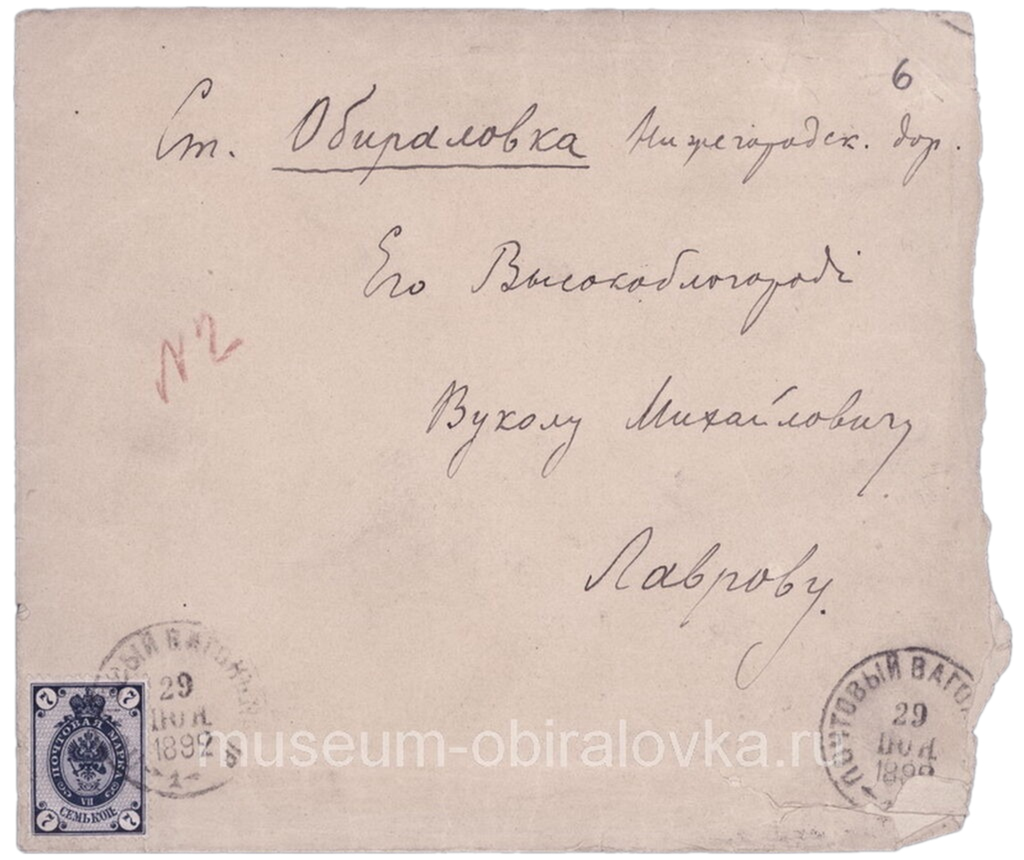 6
Ст. Обираловка Нижегородск. дор.
Его Высокоблогороді
Вуколу Михайловичу
N 2
Лаврову.
ПОЧТОВЫЙ ВАГОНЪ
29
ІЮЛ
1892
1
7 7
ПОЧТОВАЯ МАРКА
VII
СЕМЬ КОП.
7 7
ПОЧТОВЫЙ ВАГО
29
ІЮЛ
1892
museum-obiralovka.ru